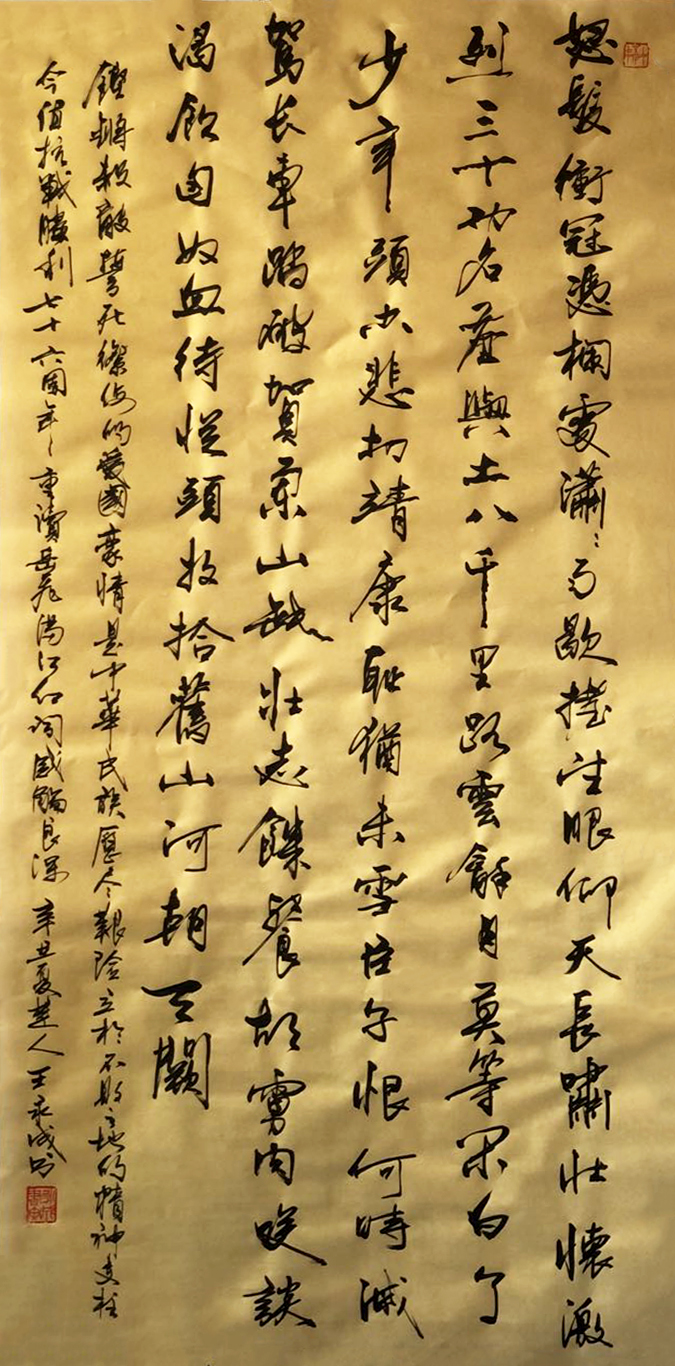 怒髮衝冠憑欄處瀟〻雨歇擡望眼仰天長嘯壯懷激
烈三十功名塵與土八千里路雲龢月莫等閑白了
少年頭空悲切靖康恥猶未雪臣子恨何時滅
駕长車踏破賀蘭山缺壯志饑餐胡虜肉笑談
渴飲匈奴血待從頭收拾舊山河朝天闕
鏗鏘殺敵誓死禦侮的愛國豪情是中華民族歷尽艱险立於不敗之地的精神支柱
今值抗戰勝利七十六周年重讀岳飛滿江红词感觸良深 辛丑夏楚人王永成书